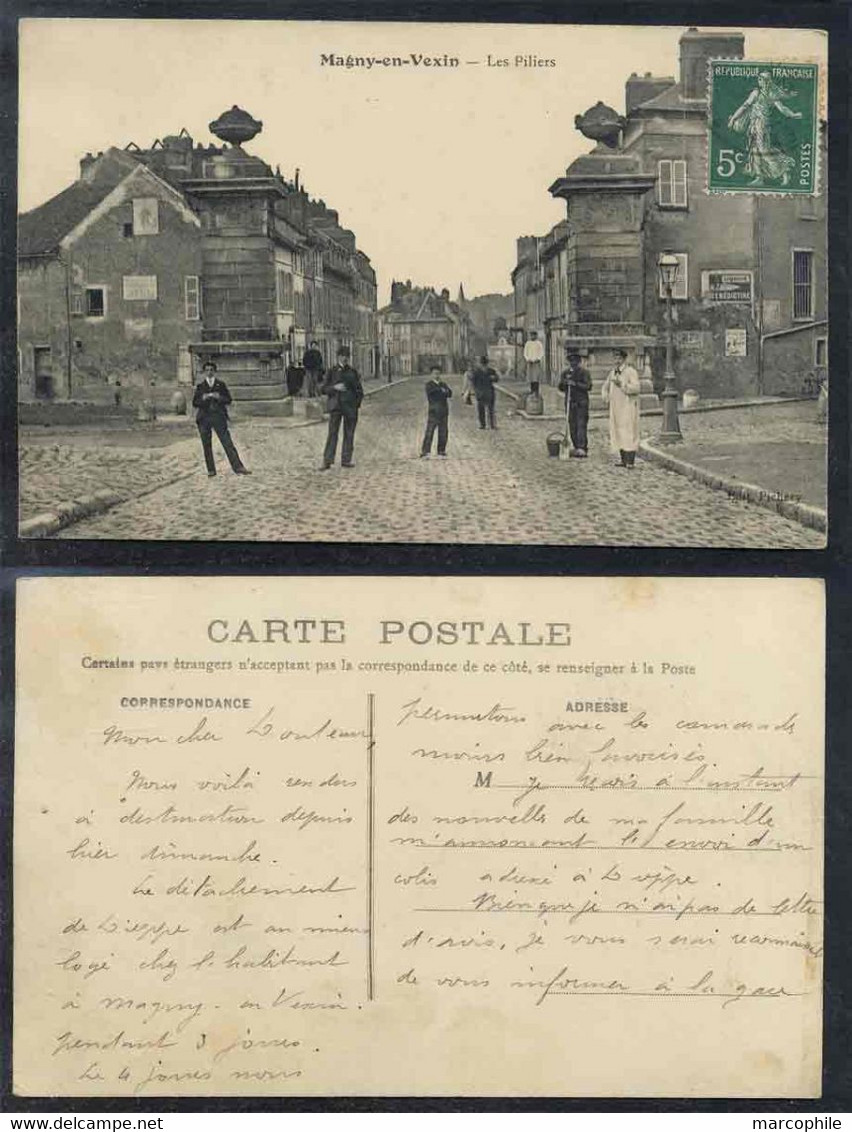 Magny-en-Vexin — Les Piliers
REPUBLIQUE FRANÇAISE
5c
POSTES
BÉNÉDICTINE
Edit. Pichery
CARTE POSTALE
Certains pays étrangers n'acceptent pas la correspondance de ce côté, se renseigner à la Poste
CORRESPONDANCE
Mon cher Docteur,
Nous voilà rendus
à destination depuis
hier dimanche.
Le détachement
de Dieppe est au mieux
logé chez l'habitant
à Magny-en Vexin.
pendant 3 jours.
Le 4 jours nous
ADRESSE
permutons avec les camarads
moins bien favorisés
M
Je reçois à l'instant
des nouvelles de ma famille
m'annoncant l'envoi d'un
colis adressé à Dieppe.
Bien que je n'ai pas de lettre
d'avis, je vous serai reconnaissant
de vous informer à la gare
marcophile